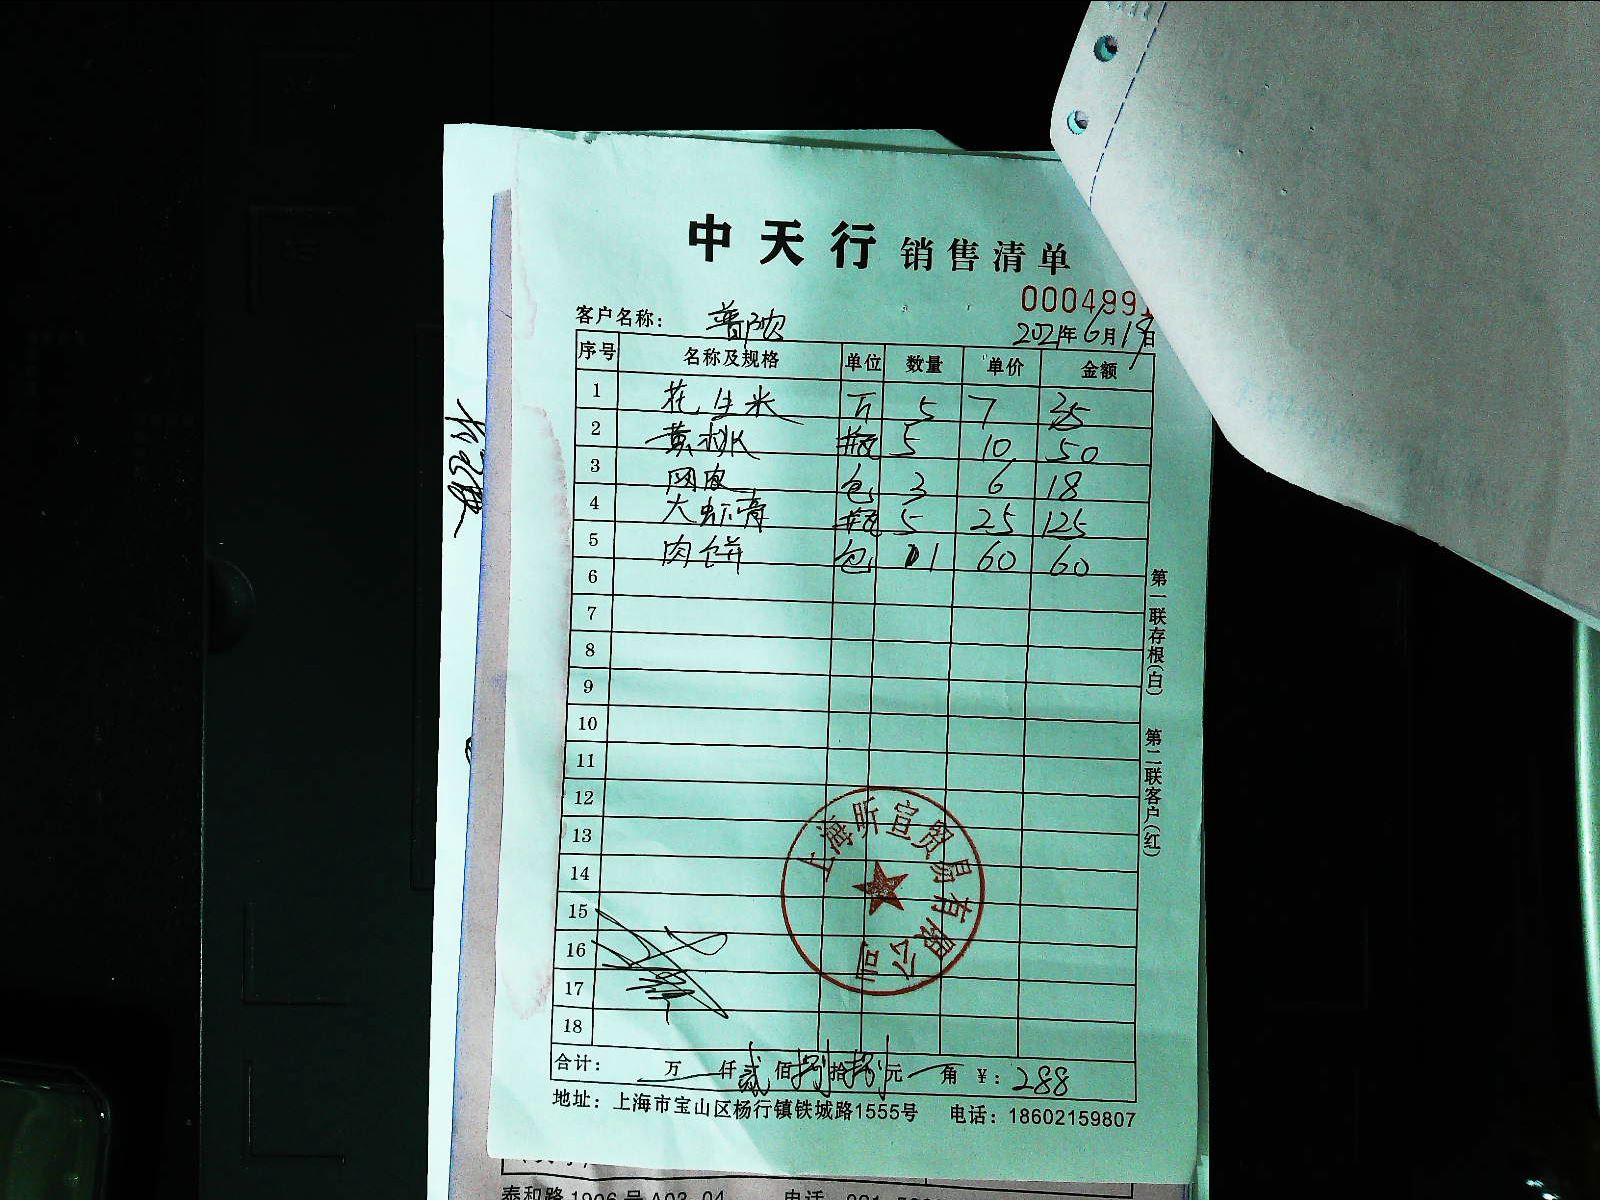 中天行 销售清单
000499
客户名称： 普陀 2021年6月19日
序号 名称及规格 单位 数量 单价 金额
1 花生米 斤 5 7 35
2 黄桃 瓶 5 10 50
3 网皮 包 3 6 18
4 大虾膏 瓶 5 25 125
5 肉饼 包 1 60 60
6
7
8
9
10
11
12
13
14
15
16
17
18
上海昕宣贸易有限公司
合计： 万 仟贰佰捌拾捌元 角 ¥：288
地址：上海市宝山区杨行镇铁城路1555号 电话：18602159807
第一联存根(白)
第二联客户(红)
泰和路1906号A03-04 电话 021